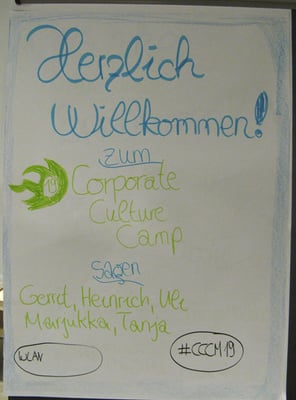 Herzlich
Willkommen!
zum
Corporate
Culture
Camp
sagen
Gerrit, Heinrich, Uli
Marjukka, Tanja
WLAN
#CCCM19